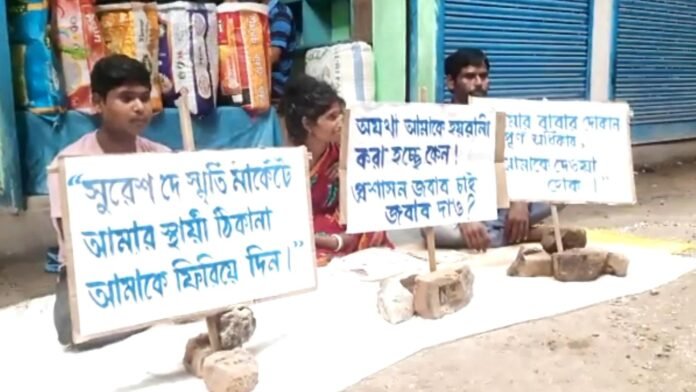 "সুরেশ দে স্মৃতি মার্কেটে
আমার স্থায়ী ঠিকানা
আমাকে ফিরিয়ে দিন।"
অযথা আমাকে হয়রানী
করা হচ্ছে কেন!
প্রশাসন জবাব চাই
জবাব দাও?
বাবার দোকান
অধিকার,
আমাকে দেওয়া
হোক।"